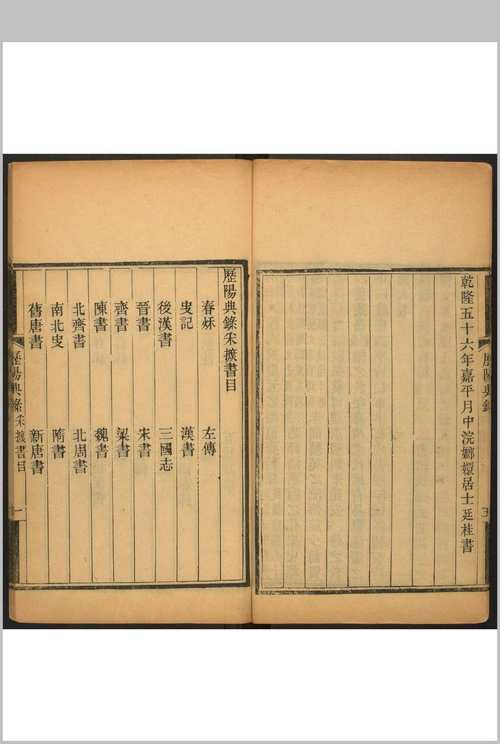 歷陽典錄
五
乾隆五十六年嘉平月中浣鄉㒟居士廷桂書
歷陽典錄采摭書目
春秌 左傳
㕜記 漢書
後漢書 三國志
晉書 宋書
齊書 梁書
陳書 魏書
北齊書 北周書
南北㕜 隋書
舊唐書 新唐書
歷陽典錄 采摭書目 一